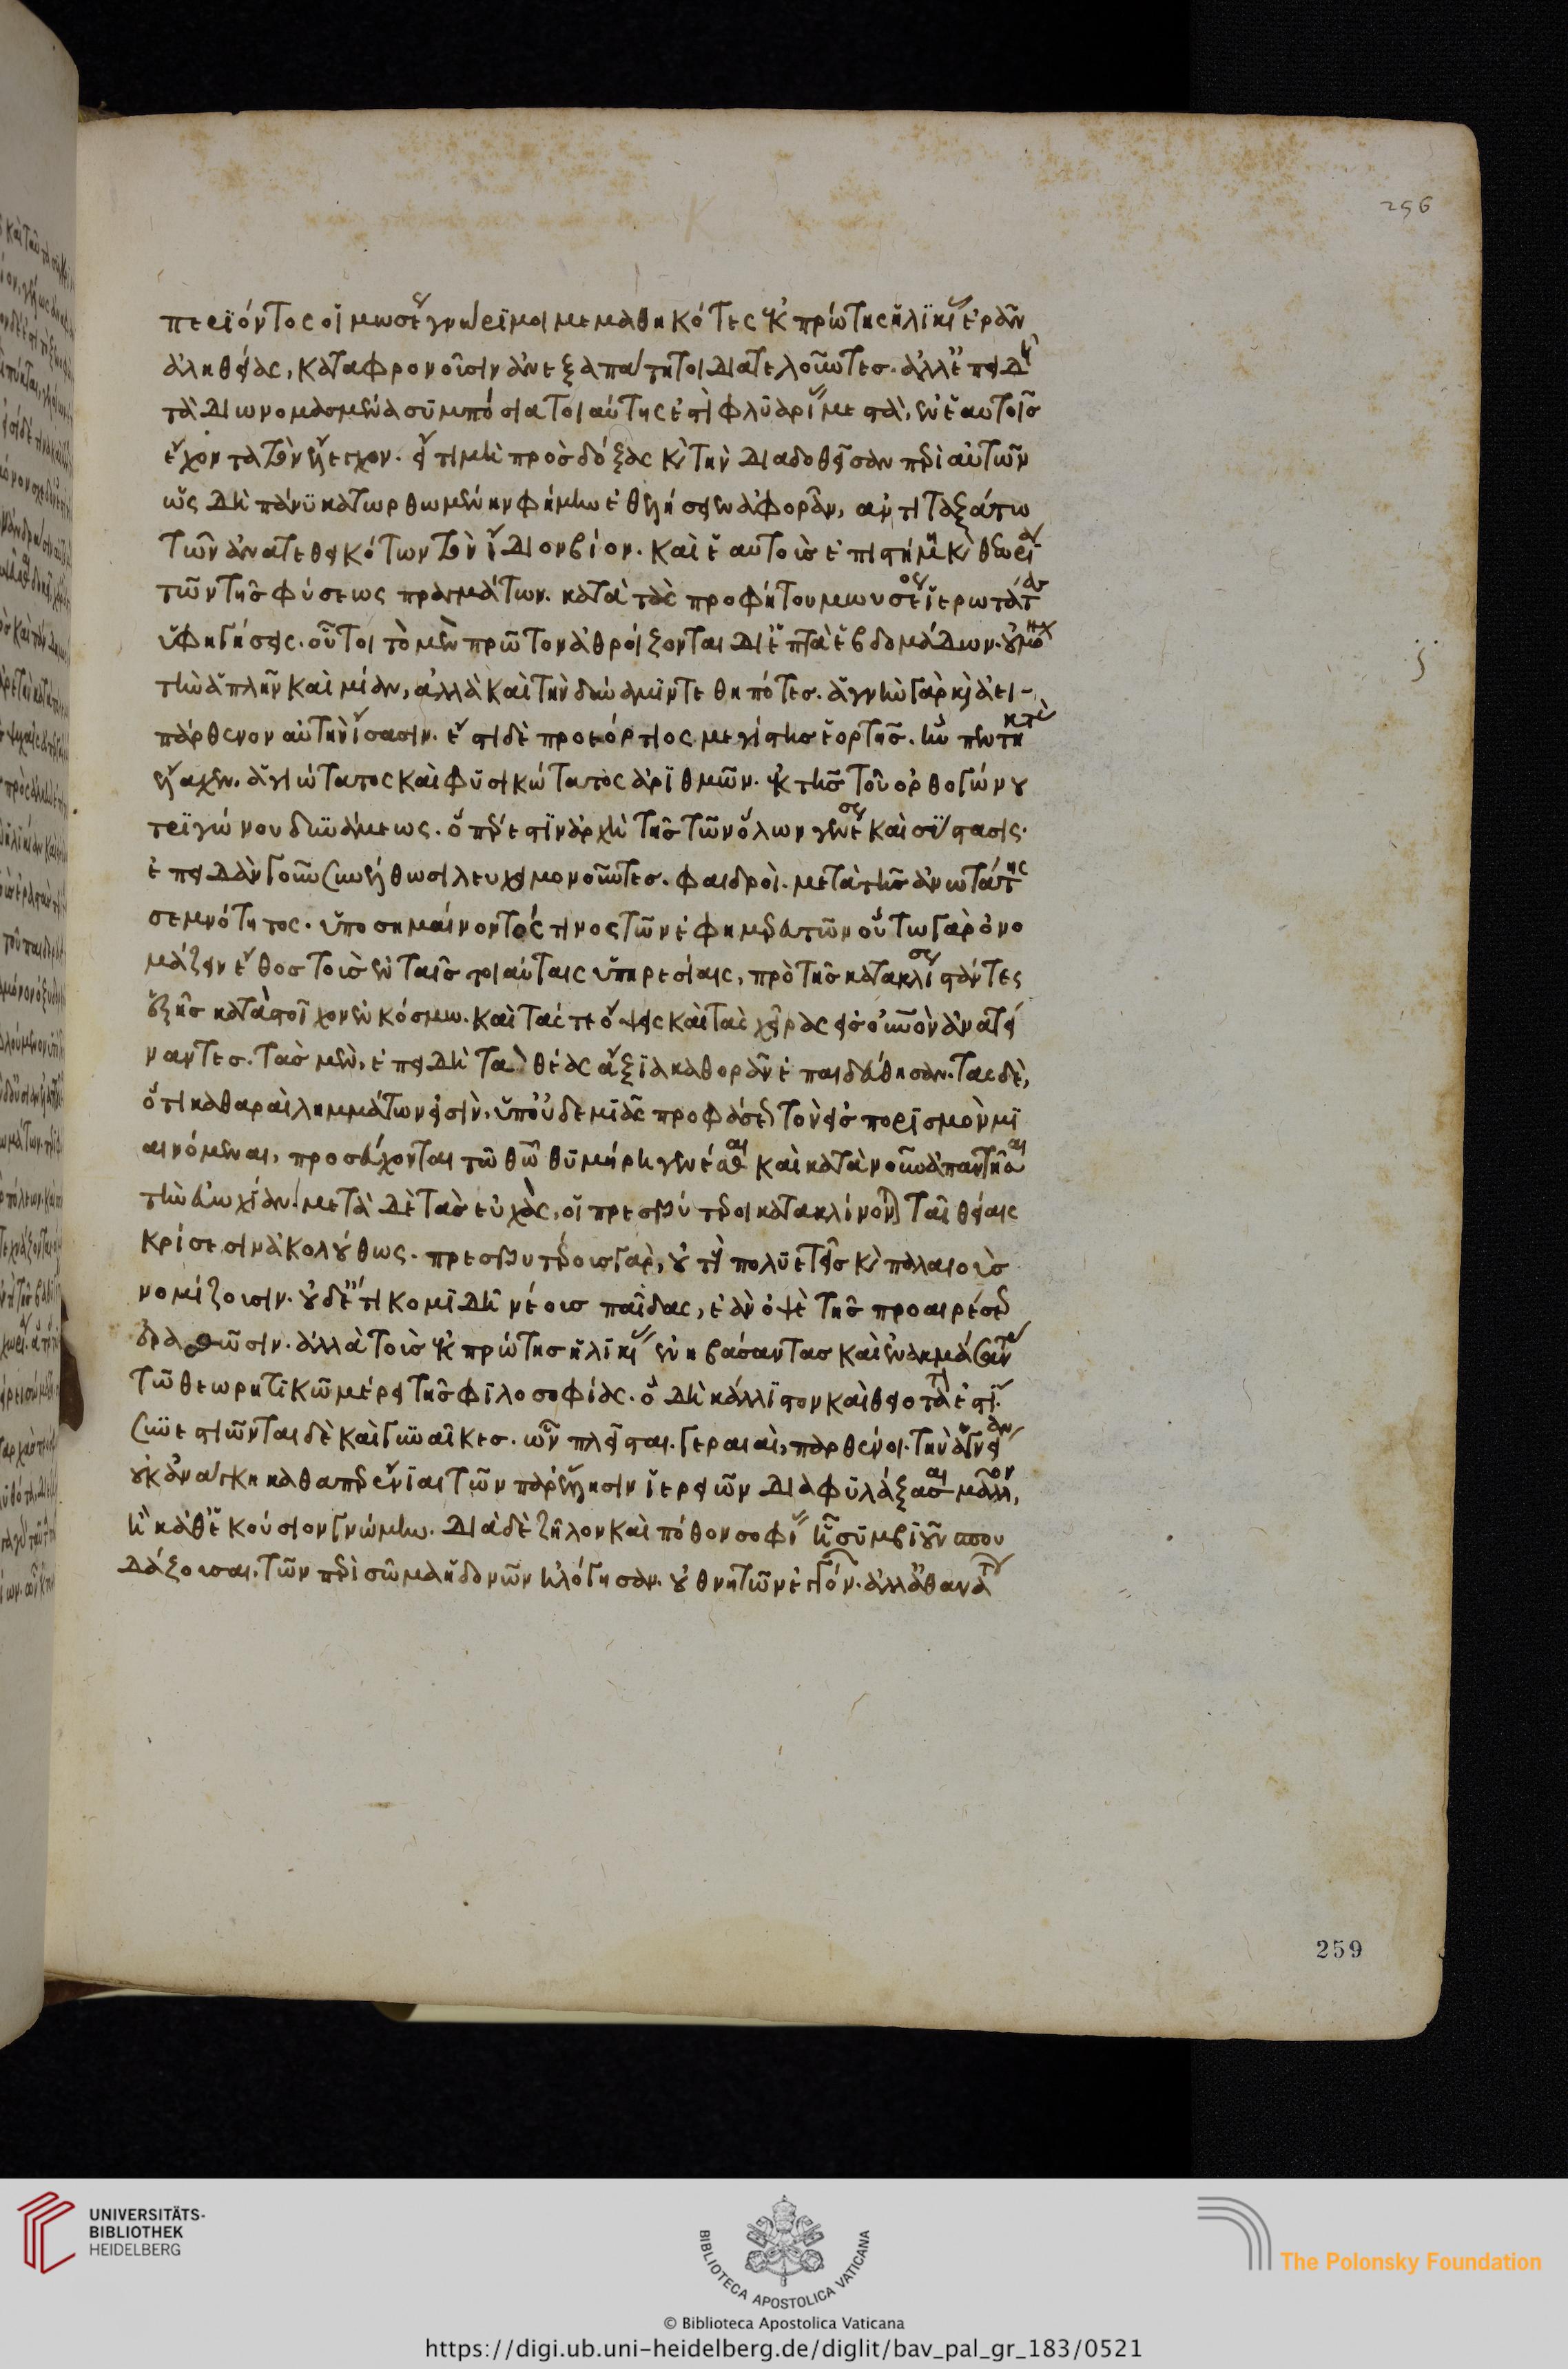 περιόντος οἱ μωσέως γνώριμοι μεμαθηκότες ἐκ πρώτης ἡλικίας ἐρᾶν
ἀληθείας, καταφρονοῦσιν ἀνεξαπάτητοι διατελοῦντες. ἀλλ' ἐπειδὴ
τὰ διωνομασμένα συμπόσια τοιαύτης ἐστὶ φλυαρίας μεστὰ, ἐν ἑαυτοῖς
ἔχοντα τὸν ἔλεγχον. εἴ τι μὴ πρὸς δόξας καὶ τὴν διαδοθεῖσαν περὶ αὐτῶν
ὡς δὴ πάνυ κατωρθωμένην φήμην ἐθελήσειεν ἀφορᾶν, ἀντιταξάτω
τῶν ἀνατεθεικότων τὸν ἴδιον βίον. καὶ ἑαυτοὺς ἐπιστήμη καὶ θεωρία
τῶν τῆς φύσεως πραγμάτων. κατὰ τὰς προφήτου μωυσέως ἱερωτάτας
ὑφηγήσεις. οὗτοι τὸ μὲν πρῶτον ἀθροίζονται δι' ἑπτὰ ἑβδομάδων. οὐ μόνον
τὴν ἁπλῆν καὶ μίαν, ἀλλὰ καὶ τὴν δύναμιν τεθηπότες. ἁγνὴν γὰρ καὶ ἀει
πάρθενον αὐτὴν ἴσασιν. ἔστι δὲ προεόρτιος μεγίστης ἑορτῆς. ἣν πεντηκοντὰς
ἔλαχεν. ἁγιώτατος καὶ φυσικώτατος ἀριθμῶν. ἐκ τῆς τοῦ ὀρθογωνίου
τριγώνου δυνάμεως. ὅπερ ἐστὶν ἀρχὴ τῆς τῶν ὅλων γενέσεως καὶ συστάσις.
ἐπειδὰν γοῦν συνέλθωσι λευχειμονοῦντες. φαιδροὶ. μετὰ τῆς ἀνωτάτης
σεμνότητος. ὑποσημαίνοντός τινος τῶν ἐφημερευτῶν οὕτω γὰρ ὀνο
μάζειν ἔθος τοὺς ἐν ταῖς τοιαύταις ὑπηρεσίαις, πρὸ τῆς κατακλίσεως στάντες
ἑξῆς κατὰ στοῖχον ἐν κόσμω. καὶ τάς τε ὄψεις καὶ τὰς χεῖρας εἰς οὐνὸν ἀνατεί
ναντες. τὰς μὲν, ἐπειδὴ τὰ θέας ἄξια καθορᾶν ἐπαιδεύθησαν. τὰς δὲ,
ὅτι καθαραὶ λημμάτων εἰσὶν. ὑπ' οὐδεμιᾶς προφάσεως τὸν εἰς πορισμὸν μι
αινόμεναι, προσεύχονται τῶ θῶ θυμήρη γενέσθαι καὶ κατὰ νοῦν ἀπαντῆσαι
τὴν εὐωχίαν. μετὰ δὲ τὰς εὐχὰς, οἱ πρεσβύτεροι κατακλίνονται ταῖ θείαις
κρίσεσιν ἀκολούθως. πρεσβυτέρους γὰρ, οὐ τῆ πολυετεῖς καὶ παλαιοὺς
νομίζουσιν. οὐδ' ἔτι κομιδῆ νέους παῖδας, ἐὰν ὀψὲ τῆς προαιρέσεως
ἐρασθῶσιν. ἀλλὰ τοὺς ἐκ πρώτης ἡλικίας ἐνηβάσαντας καὶ ἐνακμάσαντας
τῶ θεωρητικῶ μέρει τῆς φιλοσοφίας. ὃ δὴ κάλλιστον καὶ θειότατόν ἐστι.
συνεστιῶνται δὲ καὶ γυναῖκες. ὧν πλεῖσται. γεραιαὶ, παρθένοι. τὴν ἁγνείαν
οὐκ ἀνάγκη καθάπερ ἔνιαι τῶν παρ' ἕλλησιν ἱερειῶν διαφυλάξασαι μᾶλλον,
ἢ καθ' ἑκούσιον γνώμην. διὰ δὲ ζῆλον καὶ πόθον σοφίας ἧ συμβιοῦν σπου
δάζουσαι. τῶν περὶ σῶμα ἡδονῶν ἠλόγησαν. οὐ θνητῶν ἐκγόνων. ἀλλ' ἀθανάτων
256
259
UNIVERSITÄTS-
BIBLIOTHEK
HEIDELBERG
BIBLIOTECA APOSTOLICA VATICANA
The Polonsky Foundation
© Biblioteca Apostolica Vaticana
https://digi.ub.uni-heidelberg.de/diglit/bav_pal_gr_183/0521